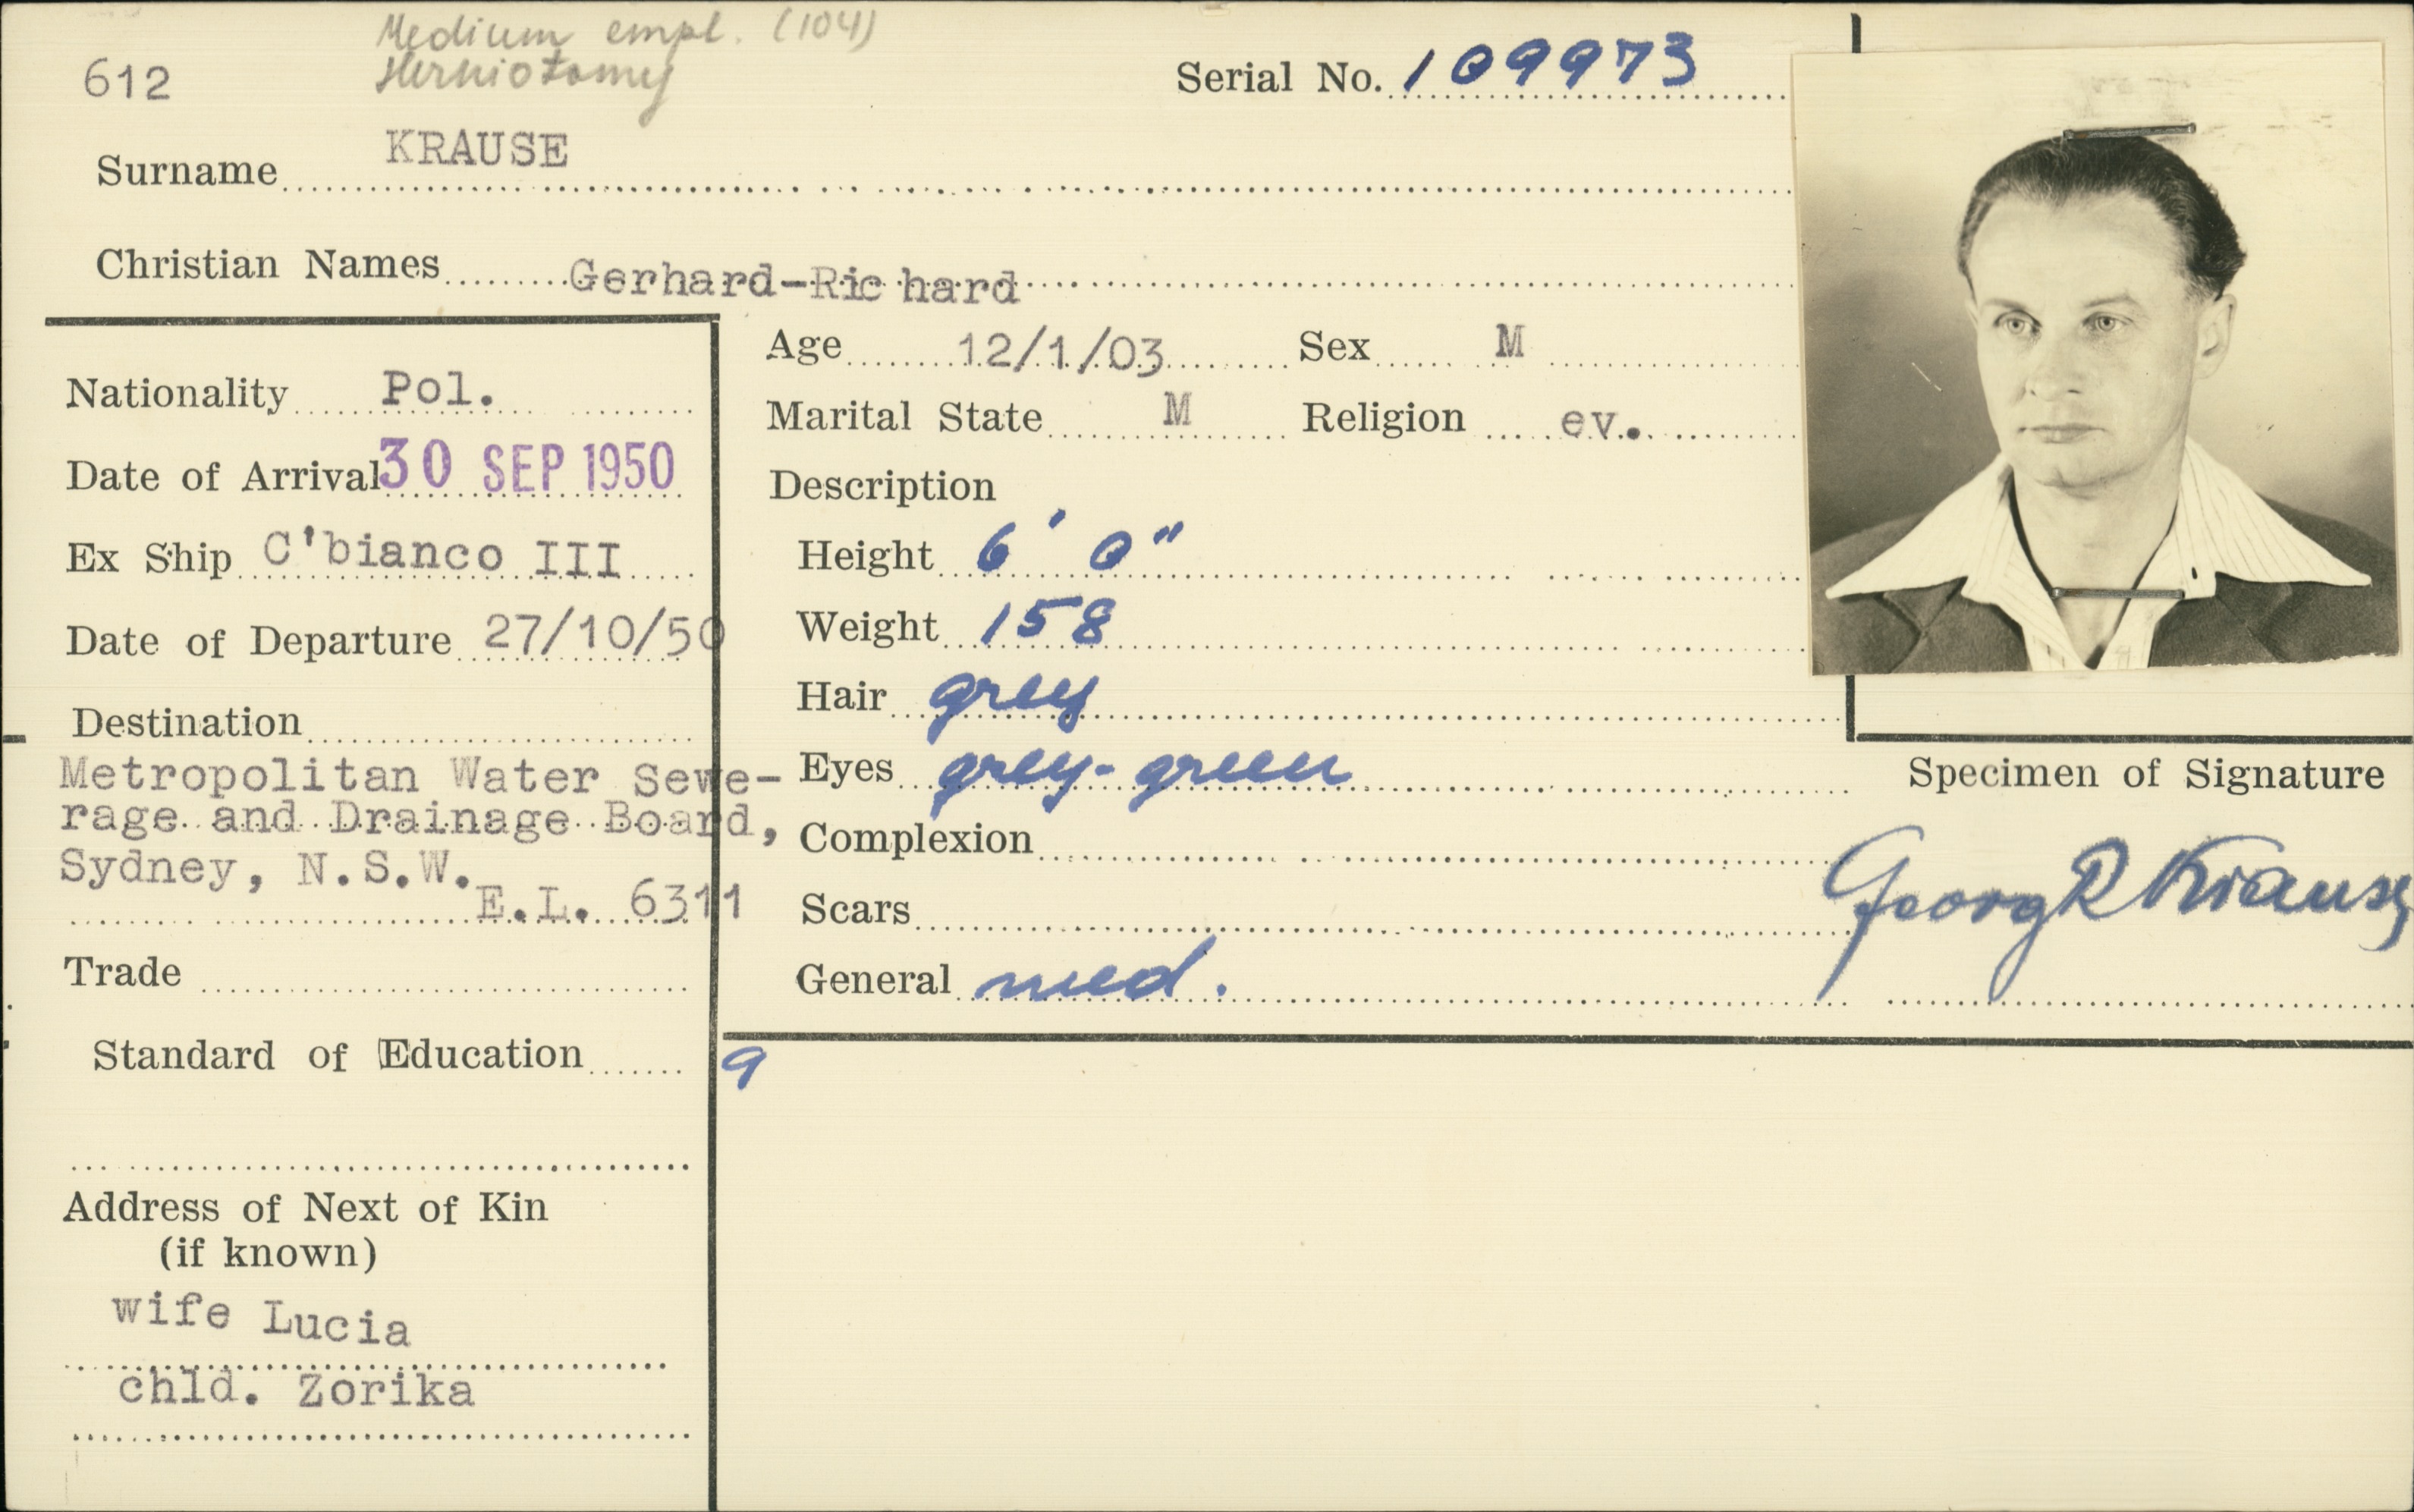 Medium empl. (104)
612 Herniotomy
Serial No. 109973
Surname KRAUSE
Christian Names Gerhard-Richard
Age 12/1/03 Sex M
Nationality Pol.
Marital State M Religion ev.
Date of Arrival 30 SEP 1950
Description
Ex Ship C'bianco III
Height 6' 0"
Date of Departure 27/10/50
Weight 158
Hair grey
Destination
Metropolitan Water Sewe-
rage and Drainage Board,
Sydney, N.S.W.
E.L. 6311
Eyes grey-green
Complexion
Scars
General med.
Specimen of Signature
Georg R Krause
Trade
Standard of Education 9
Address of Next of Kin
(if known)
wife Lucia
chld. Zorika